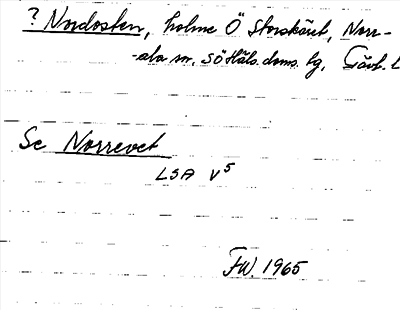 ? Nordosten, holme Ö Storskäret, Norr-
-ala sn, SöHäls. doms. tg, Gävl. l
Se Norrevet
LSA V5
FW. 1965